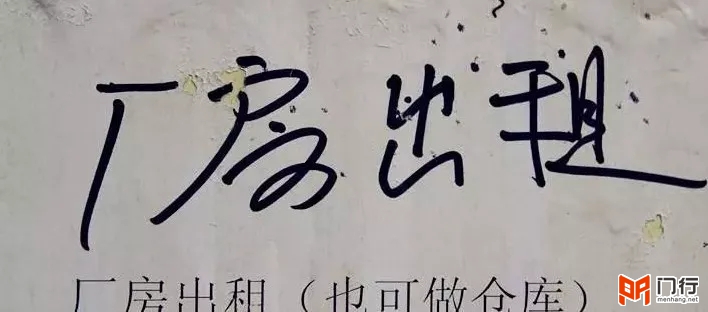 厂房出租
厂房出租（也可做仓库）
门行
menhang.net